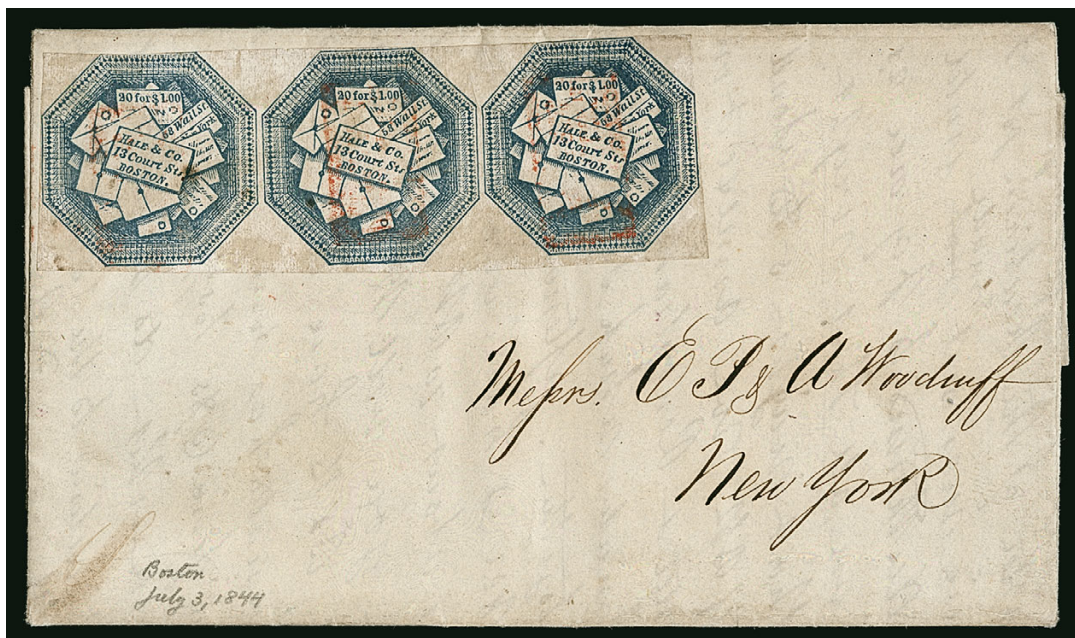 20 for $1.00
58 Wall St.
New York
HALE & Co.
13 Court St.
BOSTON.
20 for $1.00
58 Wall St.
York
HALE & Co.
13 Court St.
BOSTON.
20 for $1.00
58 Wall St.
York
HALE & Co.
13 Court St.
BOSTON.
Messrs. E P & A Woodruff
New York
Boston
July 3, 1844